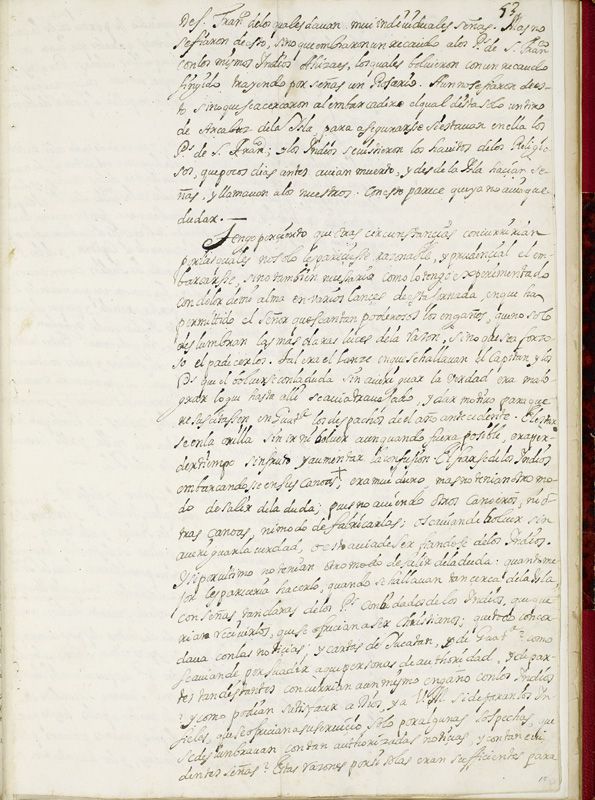 53
de S. Fran.co de los quales dauan mui indiuiduales señas. Mas no
se fiaron de esto, sino que embiaron un recaudo a los P.s de S. Fran.co
con los mismos Indios Ahizaes, los quales boluieron con un recaudo
fingido trayendo por señas un Rosario. Aun no se fiaron de es-
to sino que se acercaron al embarcadero el qual dista solo un tiro
de Arcabuz de la Isla, para asegurarse si estauan en ella los
P.s de S. Fran.co; y los Indios se uistieron los hauitos de los Religio-
sos, que pocos dias antes auian muerto, y desde la Isla hacian se-
ñas, y llamauan a los nuestros. Con esto parece que ya no auia que
dudar.
Tengo por cierto que otras circunstancias concurririan
por las quales no solo les pareciese razonable, y prudencial el em-
barcarse, sino tambien necesario como lo tengo experimentado
con dolor de mi alma en varios lances de esta jornada, en que ha
permitido el Señor que sean tan poderosos los engaños, que no solo
deslumbran las mas claras luces de la razon, sino que sea forzo-
so el padecerlos. Tal era el lanze en que se hallauan el Capitan, y los
P.s que el boluerse con la duda sin aueriguar la verdad era malo-
grar lo que hasta alli se auia trauajado, y dar motiuo para que
resuscitassen en Guat.a los despachos de el año antecedente. El estar-
se en la orilla sin ir ni boluer aun quando fuera posible, era per-
der tiempo sin fruto y aumentar la confusion. El fiarse de los Indios
embarcandose en sus canoas, era mui duro, mas no tenian otro mo-
do de salir de la duda; pues no auiendo otros canoeros, ni o-
tras canoas, ni modo de fabricarlas; o se auian de boluer sin
aueriguar la verdad, o esto auia de ser fiandose de los Indios.
Y si por ultimo no tenian otro modo de salir de la duda: quanto me-
jor les pareceria hacerlo, quando se hallauan tan cerca de la Isla,
con señas tan claras de los P.s combidados de los Indios, que que-
rian receuirlos, que se ofrecian a ser christianos; que todo concor-
daua con las noticias, y cartas de Yucatan, y de Guat.a? como
se auian de persuadir a que personas de authoridad, y de par-
tes tan distantes concurrian a un mismo engaño con los Indios
? y como podian satisfacer a Dios, y a V. M. si dexaran los In-
fieles, que se ofrecian a su seruicio, solo por algunas sospechas, que
se deslumbrauan con tan authorizadas noticias, y con tan eui-
dentes señas? Estas razones por si solas eran sufficientes para